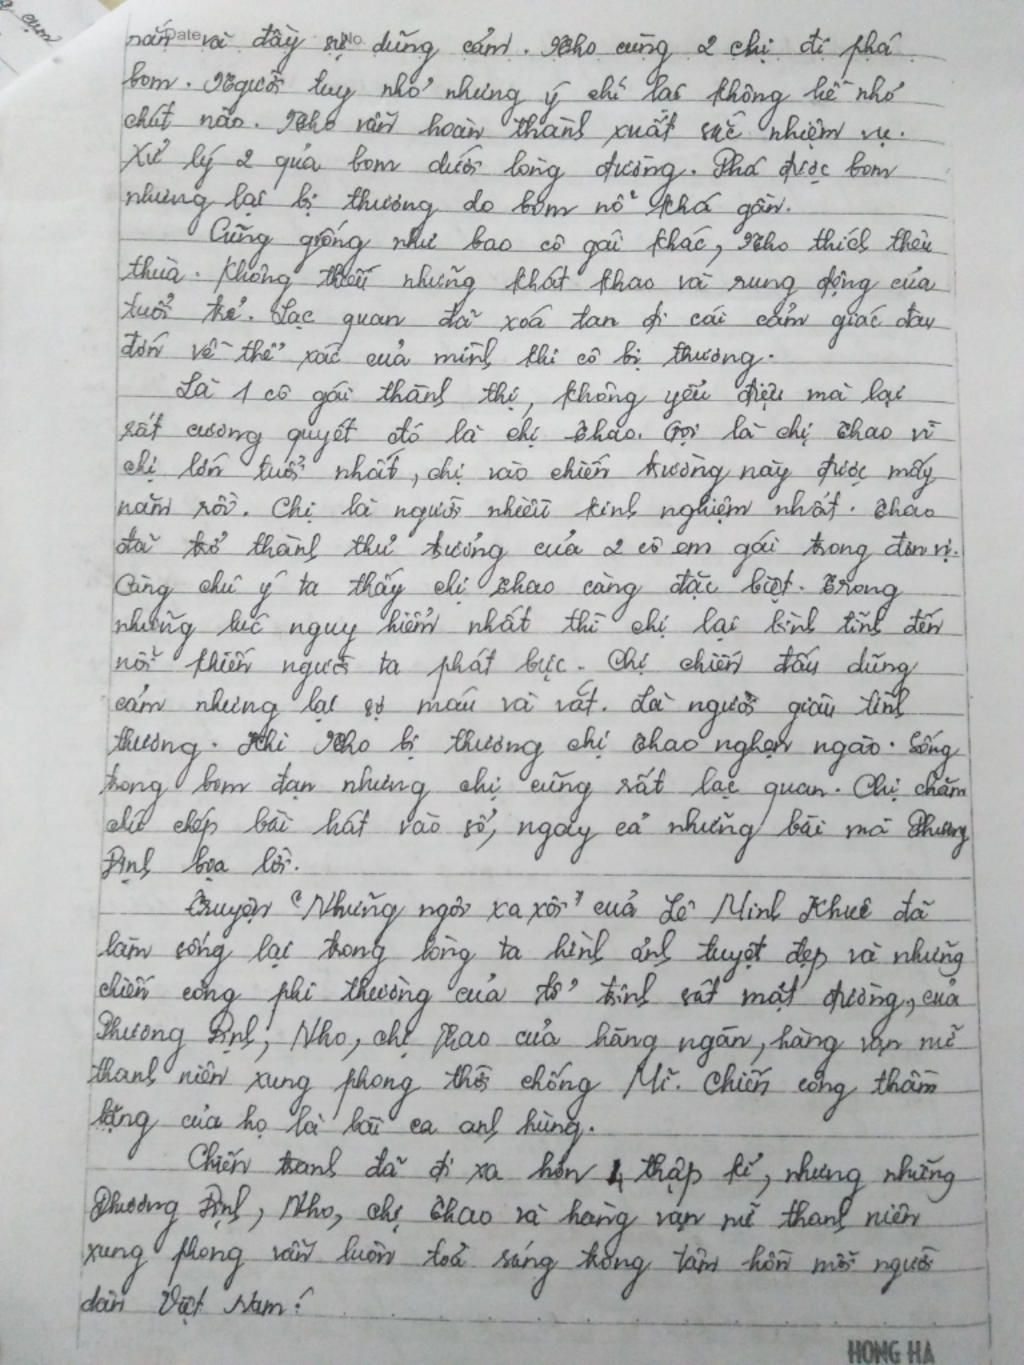 nắn và đầy sự dũng cảm. Nho cùng 2 chị đi phá
Date No.
bom. Người tuy nhỏ nhưng ý chí lại không hề nhỏ
chút nào. Nho vẫn hoàn thành xuất sắc nhiệm vụ.
Xử lý 2 quả bom dưới lòng đường. Phá được bom
nhưng lại bị thương do bom nổ khá gần.
Cũng giống như bao cô gái khác, Nho thích thêu
thùa. Không thiếu những khát khao và rung động của
tuổi trẻ. Lạc quan đã xoá tan đi cái cảm giác đau
đớn về thể xác của mình khi cô bị thương.
Là 1 cô gái thành thị, không yểu điệu mà lại
rất cương quyết đó là chị Thao. Gọi là chị Thao vì
chị lớn tuổi nhất, chị vào chiến trường này được mấy
năm rồi. Chị là người nhiều kinh nghiệm nhất. Thao
đã trở thành thủ trưởng của 2 cô em gái trong đơn vị.
Càng chú ý ta thấy chị Thao càng đặc biệt. Trong
những lúc nguy hiểm nhất thì chị lại bình tĩnh đến
nỗi khiến người ta phát bực. Chị chiến đấu dũng
cảm nhưng lại sợ máu và vắt. Là người giàu tình
thương. Khi Nho bị thương chị Thao nghẹn ngào. Sống
trong bom đạn nhưng chị cũng rất lạc quan. Chị chăm
chỉ chép bài hát vào sổ, ngay cả những bài mà Phương
Định bịa lời.
Truyện "Những ngôi xa xôi" của Lê Minh Khuê đã
làm sống lại trong lòng ta hình ảnh tuyệt đẹp và những
chiến công phi thường của tổ trinh sát mặt đường, của
Phương Định, Nho, chị Thao của hàng ngàn, hàng vạn nữ
thanh niên xung phong thời chống Mĩ. Chiến công thầm
lặng của họ là bài ca anh hùng.
Chiến tranh đã đi xa hơn 4 thập kỉ, nhưng những
Phương Định, Nho, chị Thao và hàng vạn nữ thanh niên
xung phong vẫn luôn toả sáng trong tâm hồn mỗi người
dân Việt Nam!
HONG HA